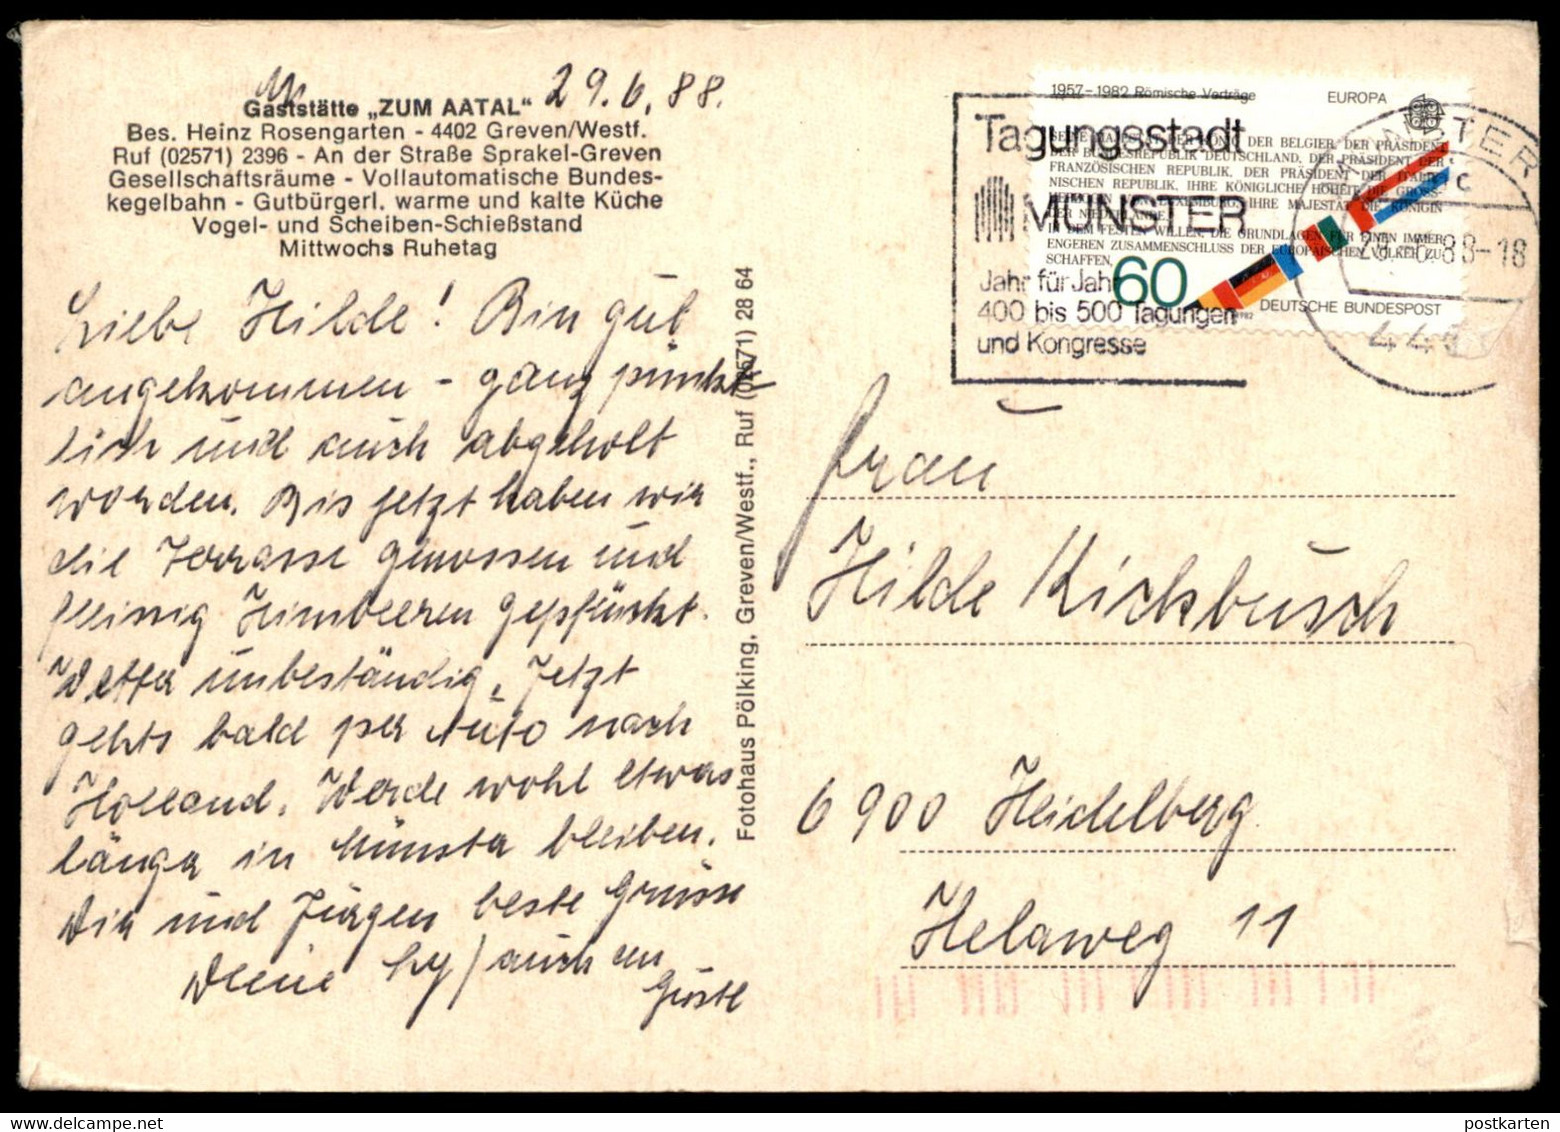 29.6.88.
Gaststätte „ZUM AATAL“
Bes. Heinz Rosengarten - 4402 Greven/Westf.
Ruf (02571) 2396 - An der Straße Sprakel-Greven
Gesellschaftsräume - Vollautomatische Bundes-
kegelbahn - Gutbürgerl. warme und kalte Küche
Vogel- und Scheiben-Schießstand
Mittwochs Ruhetag
Liebe Hilde! Bin gut
angekommen - ganz pünkt-
lich und auch abgeholt
worden. Bis jetzt haben wir
die Terrasse genossen und
fleissig Himbeeren gepflückt.
Wetter unbeständig. Jetzt
gehts bald per Auto nach
Holland. Werde wohl etwas
länger in Münster bleiben.
Dir und Jürgen beste Grüsse
Deine / auch an
Gustl
Fotohaus Pölking, Greven/Westf., Ruf (02571) 28 64
1957-1982 Römische Verträge
EUROPA
DER BELGIER, DER PRÄSIDENT
DER BUNDESREPUBLIK DEUTSCHLAND, DER PRÄSIDENT DER
FRANZÖSISCHEN REPUBLIK, DER PRÄSIDENT DER ITALIE-
NISCHEN REPUBLIK, IHRE KÖNIGLICHE HOHEIT DIE GROSS-
IHRE MAJESTÄT DIE KÖNIGIN
DER NIEDERLANDE,
IN DEM FESTEN WILLEN, DIE GRUNDLAGEN FÜR EINEN IMMER
ENGEREN ZUSAMMENSCHLUSS DER EUROPÄISCHEN VÖLKER ZU
SCHAFFEN,
60
DEUTSCHE BUNDESPOST
1982
Tagungsstadt
MÜNSTER
Jahr für Jahr
400 bis 500 Tagungen
und Kongresse
MÜNSTER
c
88-18
Frau
Hilde Kickbusch
6900 Heidelberg
Helaweg 11
postkarten